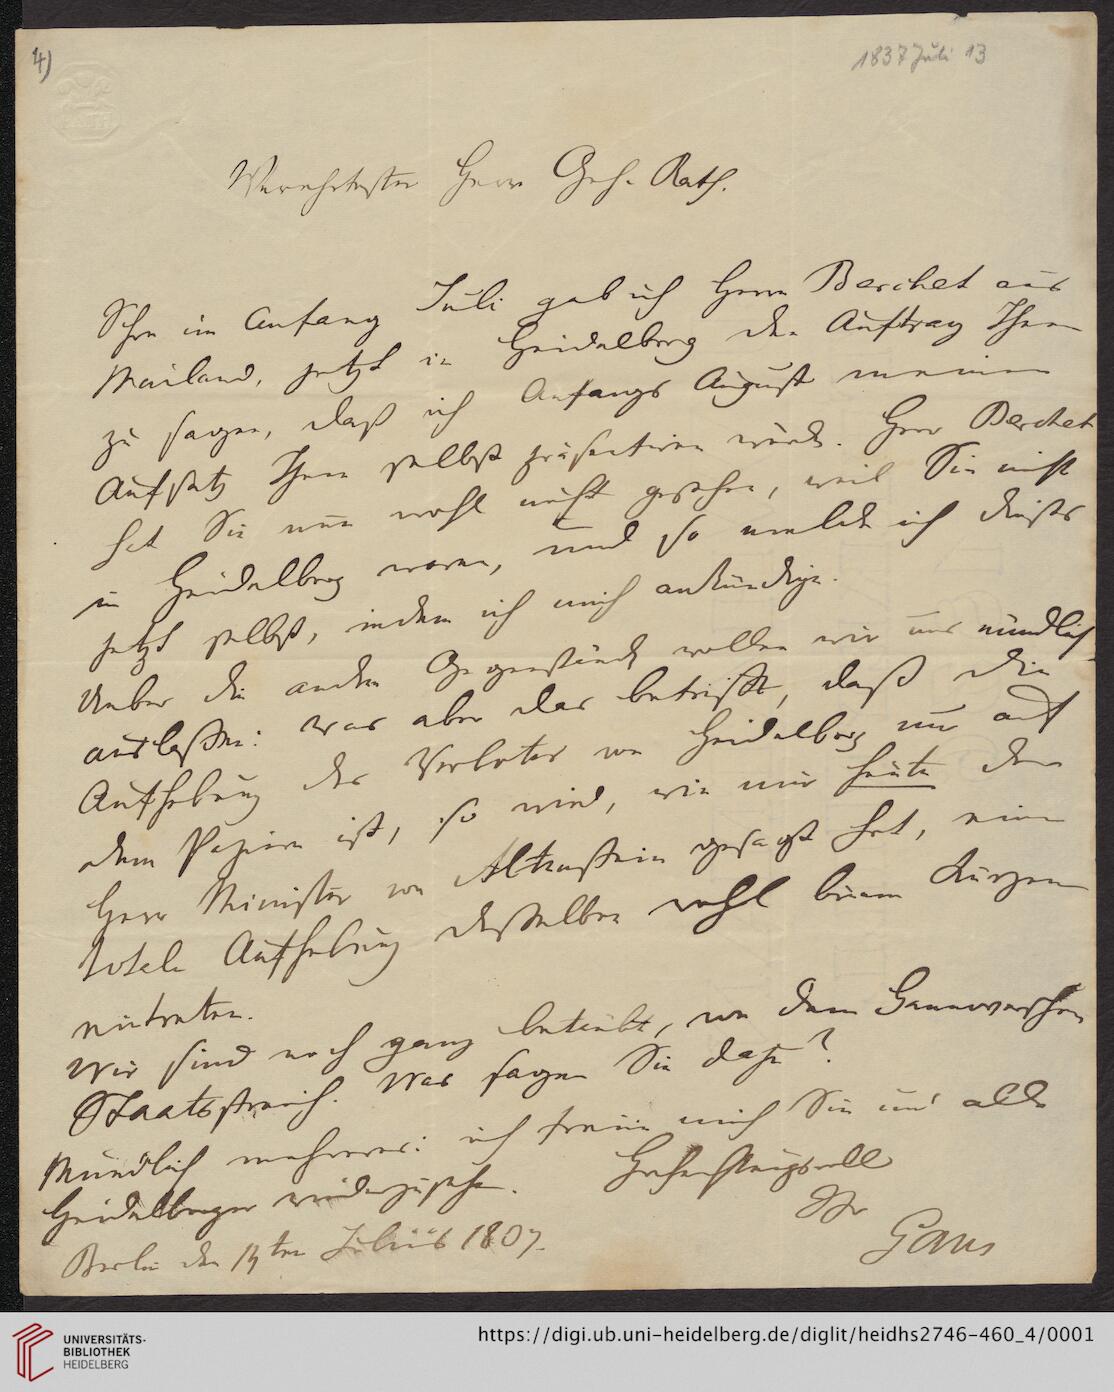 4)
1837 Juli 13
Verehrtester Herr Geh. Rath.
Schon im Anfang Juli gab ich Herrn Berchet aus
Mailand, jetzt in Heidelberg den Auftrag Ihnen
zu sagen, daß ich Anfangs August meinen
Aufsatz Ihnen selbst präsentiren würde. Herr Berchet
hat Sie nun wohl nicht gesehen, weil Sie nicht
in Heidelberg waren, und so melde ich dieses
jetzt selbst, indem ich mich ankündige.
Ueber die andern Gegenstände wollen wir uns mündlich
auslassen: was aber das betrifft, daß die
Aufhebung des Verbotes von Heidelberg nur auf
dem Papier ist, so wird, wie mir heute der
Herr Minister von Altenstein gesagt hat, eine
totale Aufhebung desselben wohl binnen Kurzem
eintreten.
Wir sind noch ganz betäubt, von dem Hannoverschen
Staatsstreich. Was sagen Sie dazu?
Mündlich mehreres: ich freue mich Sie und alle
Heidelberger wiederzusehen. Hochachtungsvoll
Ihr
Gans
Berlin den ten Julius 1837.
UNIVERSITÄTS-
BIBLIOTHEK
HEIDELBERG
https://digi.ub.uni-heidelberg.de/diglit/heidhs2746-460_4/0001